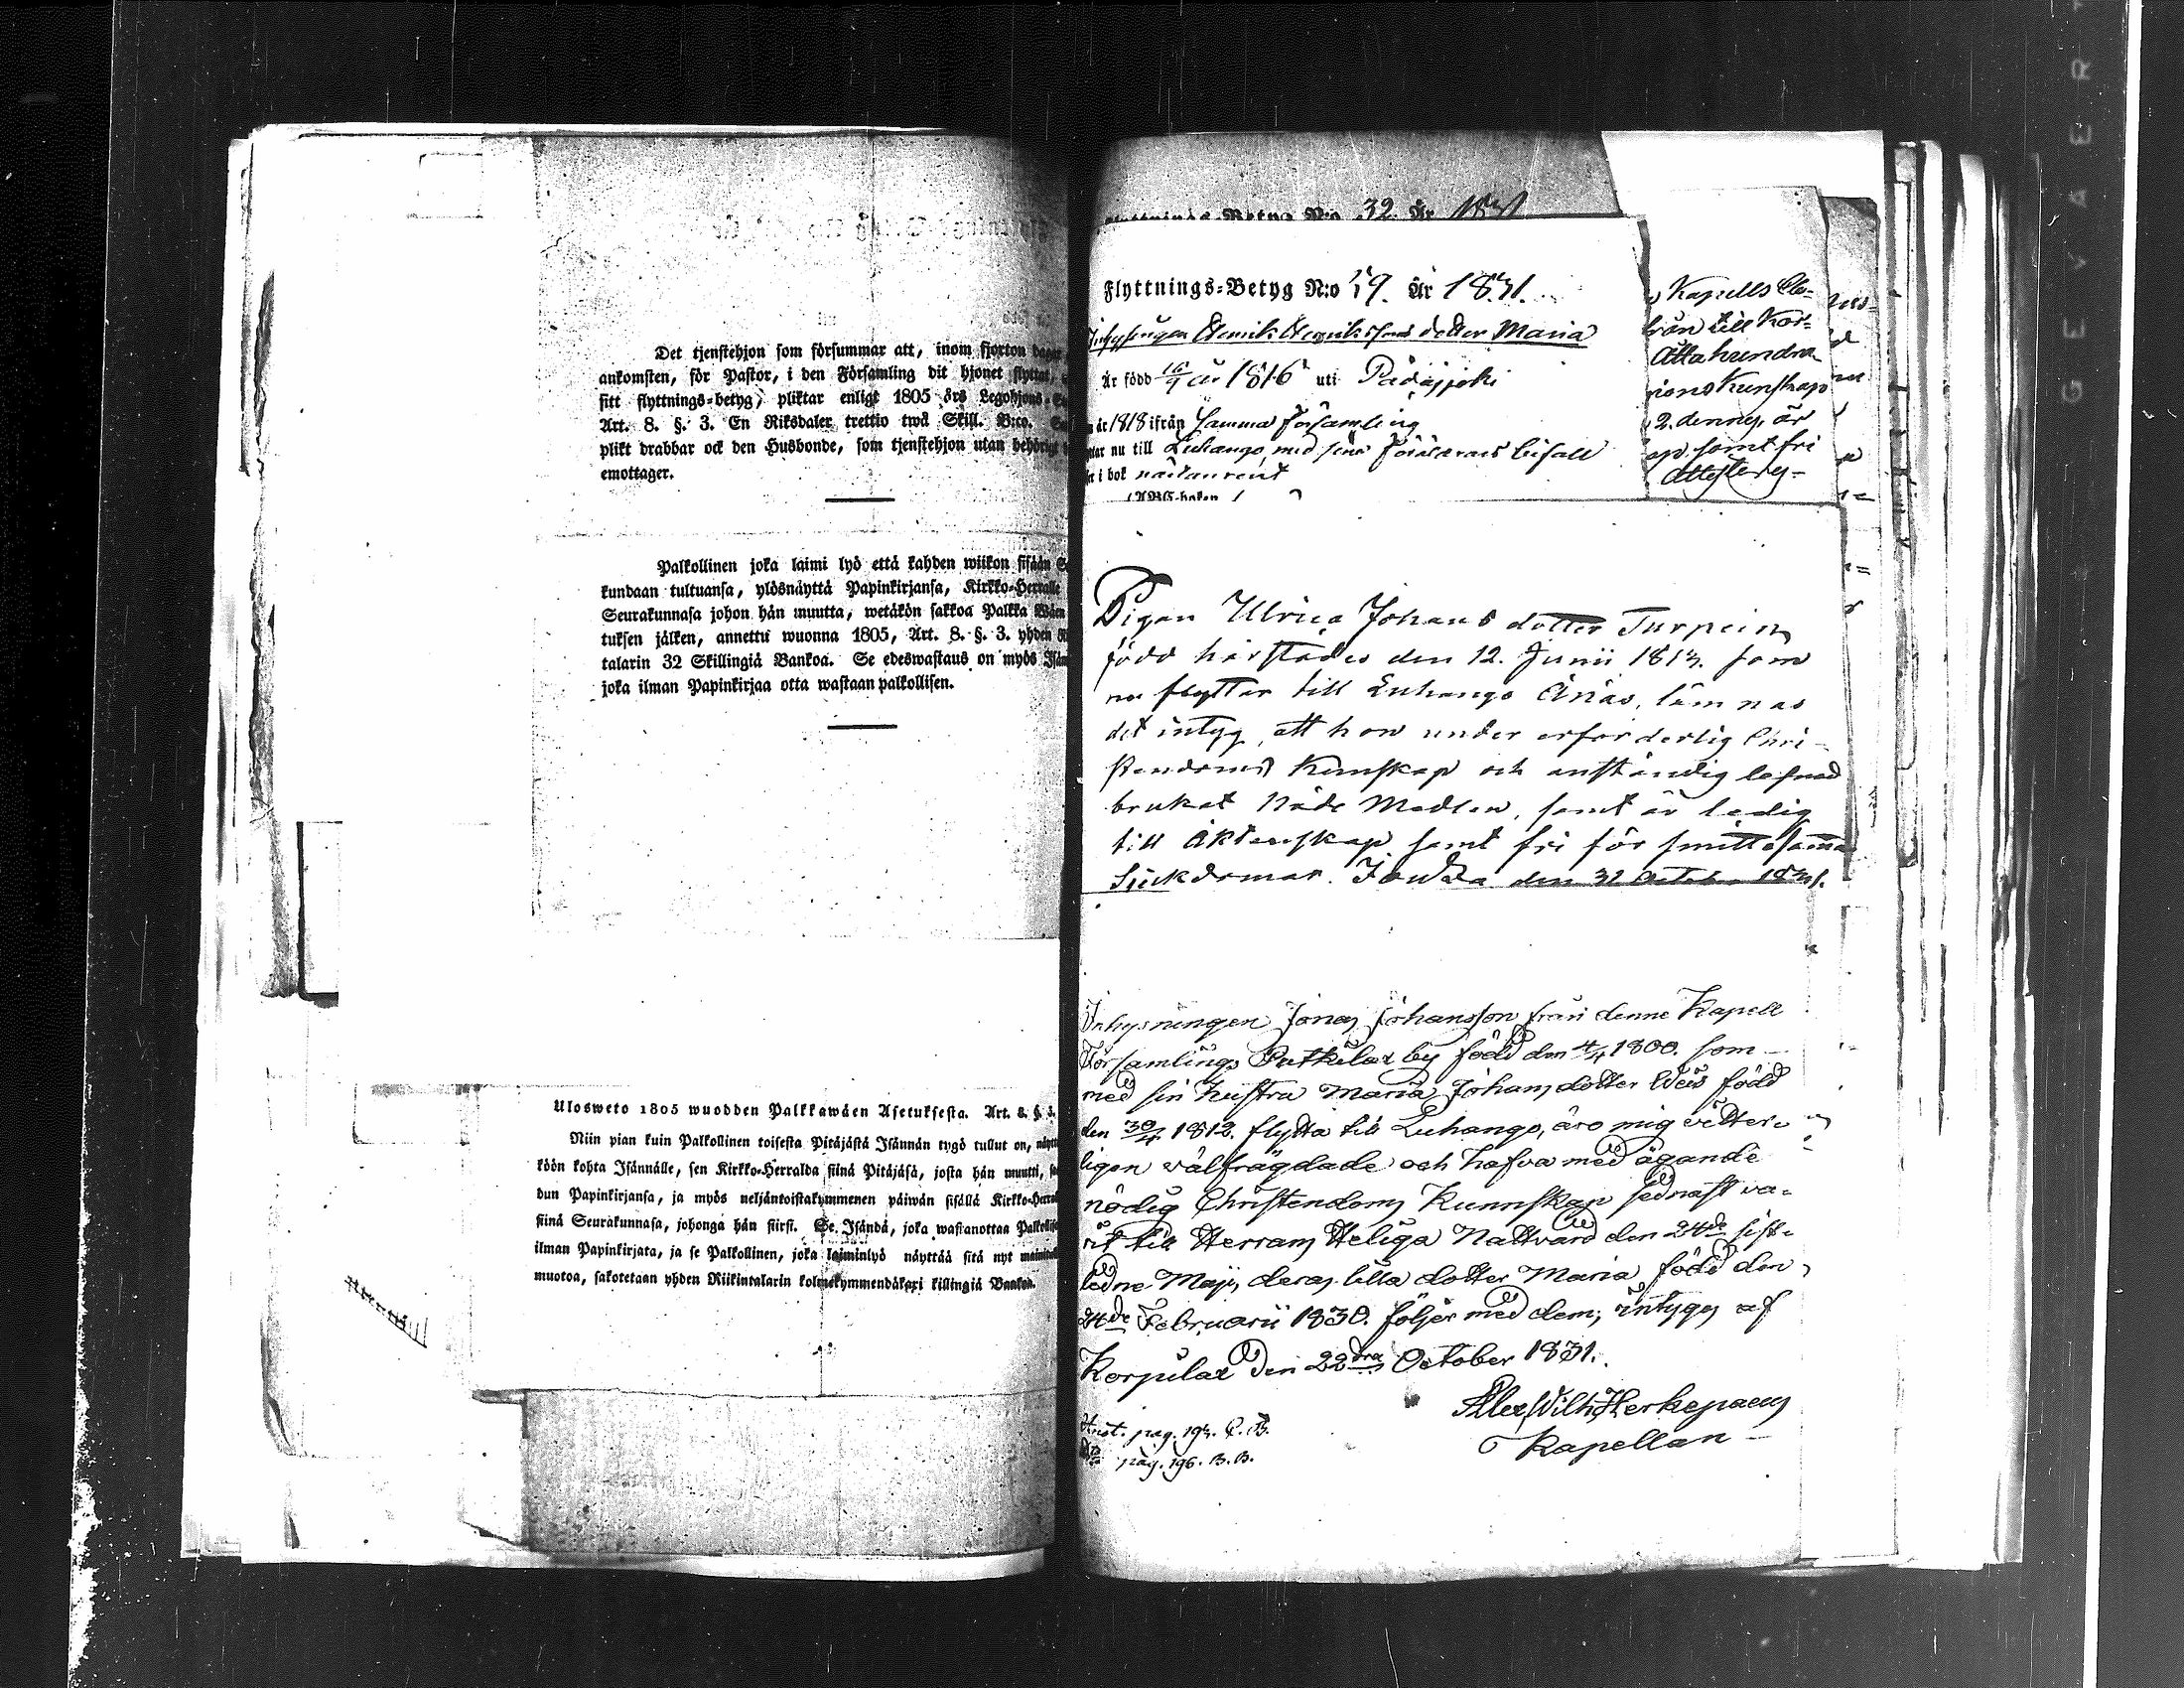 Det tjenstehjon som försummar att, inom fjorton dagar
ankomsten, för Pastor, i den Församling dit hjonet flyttat,
sitt flyttnings-betyg, pliktar enligt 1805 års Legohjons-
Art. 8. §. 3. En Riksdaler trettio twå Skill. B:co.
plikt drabbar ock den Husbonde, som tjenstehjon utan behörigt
emottager.
Palkollinen joka laimi lyö että kahden wiikon sisään
kundaan tultuansa, ylösnäyttä Papinkirjansa, Kirkko-Herralle
Seurakunnasa johon hän muutta, wetäkön sakkoa Palkka Wäen
tuksen jälken, annettu wuonna 1805, Art. 8. §. 3. yhden
talarin 32 Skillingiä Bankoa. Se edeswastaus on myös Isän
joka ilman Papinkirjaa otta wastaan palkollisen.
Ulosweto 1805 wuodden Palkkawäen Asetuksesta. Art. 8. §. 3.
Niin pian kuin Palkollinen toisesta Pitäjästä Isännän tygö tullut on, näytt
köön kohta Isännälle, sen Kirkko-Herralda siinä Pitäjäsä, josta hän muutti,
dun Papinkirjansa, ja myös neljäntoistakymmenen päiwän sisällä Kirkko-Herral
siinä Seurakunnasa, johonga hän siirsi. Se Isändä, joka wastanottaa Palkollis
ilman Papinkirjata, ja se Palkollinen, joka laiminlyö näyttää sitä nyt mainitu
muotoa, sakotetaan yhden Riikintalarin kolmekymmendäkaxi killingiä Bankoa.
Flyttnings-Betyg N:o 32. År 1831
Flyttnings-Betyg N:o 59. År 1831.
Inhysingen Henrik Henrikssons dotter Maria
Är född 16/9 år 1816 uti Padasjoki
år 1818 ifrån samma församling
nu till Luhango med sina föräldrars bifall
i bok
ABC-boken
Kapells
från till Kor-
Åtta hundra
ions Kunskap
2. denna, är
ap samt fri
Attesterg-
Pigan Ulrica Johans dotter Turpein
född härstädes den 12. Junii 1813. som
nu flyttar till Luhango Annäs, lämnas
det intyg, att hon under erforderlig Chri-
stendoms Kunskap och anständig lefnad
brukat Nåde Medlen, samt är ledig
till Äktenskap samt fri för smittosamma
Siukdomar. Joutsa den 31 October 1831.
Inhysningen Jonas Johansson från denne Kapell
Församlings Putkilax by född den 4/4 1800. som
med sin hustru Maria Johans dotter född
den 30/4 1812. flytta till Luhango, äro mig vetter-
ligen välfrägdade och hafva med ägande
nödig Christendoms Kunnskap sednast va-
rit till Herrans Heliga Nattvard den 24de sist-
ledne Maji, deras lilla dotter Maria född den
24de Februarii 1830. följer med dem; intygas af
Korpilax den 22dra October 1831.
Alex Wilh Herkepaeus
Kapellan
pag. 193. C. B.
pag. 196. B. B.
GEVAER